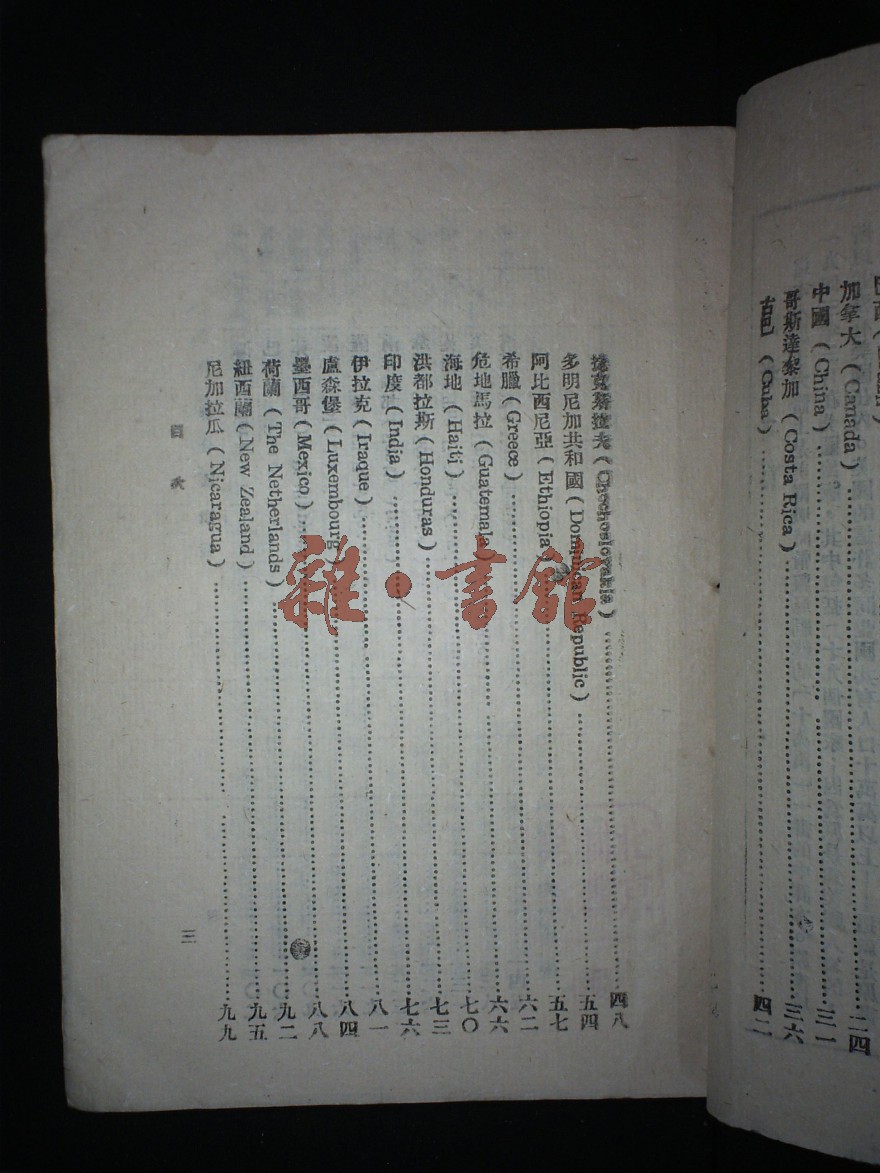 加拿大（Canada）……二四
中國（China）……三一
哥斯達黎加（Costa Rica）……三六
古巴（Cuba）……四二
捷克斯拉夫（Chechoslovakia）……四八
多明尼加共和國（Dominican Republic）……五四
阿比西尼亞（Ethiopia）……五七
希臘（Greece）……六二
危地馬拉（Guatemala）……六六
海地（Haiti）……七〇
洪都拉斯（Honduras）……七三
印度（India）……七六
伊拉克（Iraque）……八一
盧森堡（Luxembourg）……八四
墨西哥（Mexico）……八八
荷蘭（The Netherlands）……九二
紐西蘭（New Zealand）……九五
尼加拉瓜（Nicaragua）……九九
目次
三
雜·書館